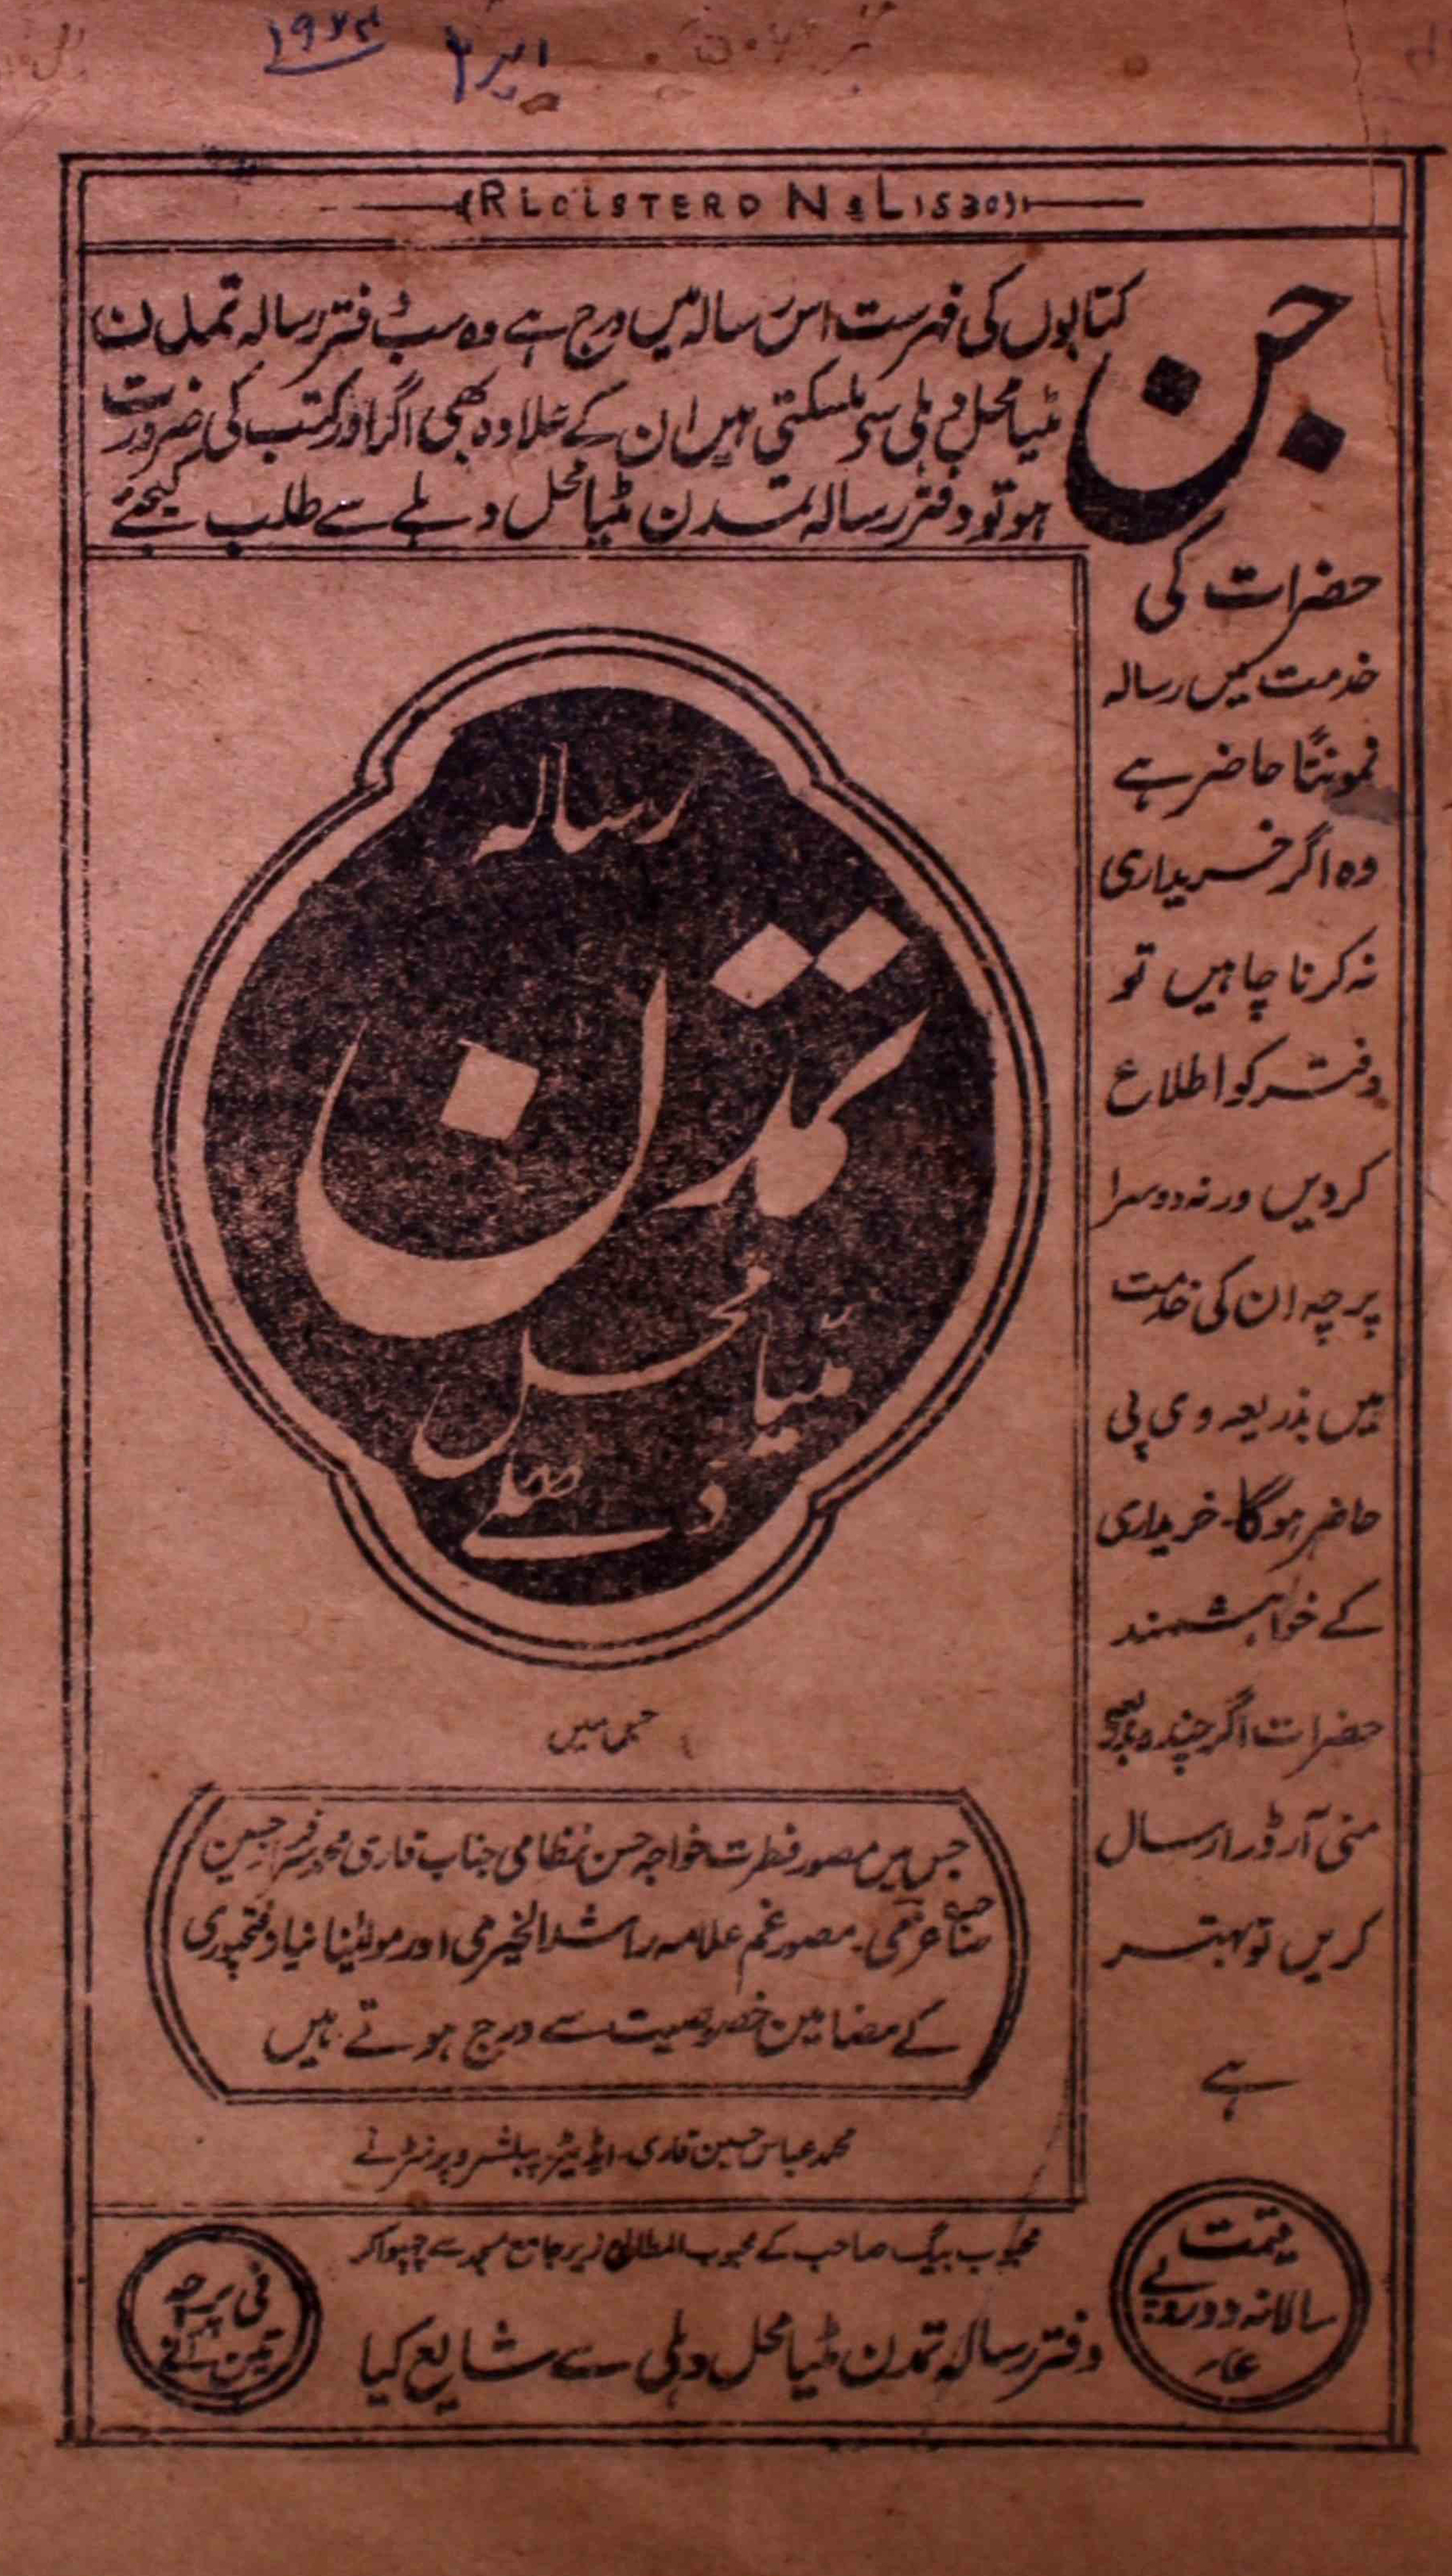 اپریل ۱۹۲۴
(RLGISTERD No L1530)
جن
کتابوں کی فہرست اس رسالہ میں درج ہے وہ سب دفتر رسالہ تمدن
مٹیا محل دہلی سے مل سکتی ہیں ان کے علاوہ بھی اگر اور کتب کی ضرورت
ہو تو دفتر رسالہ تمدن مٹیا محل دہلے سے طلب کیجئے
حضرات کی
خدمت میں رسالہ
نمونتًا حاضر ہے
وہ اگر خریداری
نہ کرنا چاہیں تو
دفتر کو اطلاع
کردیں ورنہ دوسرا
پرچہ ان کی خدمت
میں بذریعہ وی پی
حاضر ہوگا۔ خریداری
کے خواہشمند
حضرات اگر چندہ بذریعہ
منی آرڈر ارسال
کریں تو بہتر
ہے
رسالہ
تمدن
مٹیا محل
دہلے
جس میں
جس میں مصور فطرت خواجہ حسن نظامی جناب قاری محمد سرفراز حسین
صاحب عزمی۔ مصور غم علامہ راشد الخیری اور مولٰینا نیاز فتحپوری
کے مضامین خصوصیت سے درج ہوتے ہیں
محمد عباس حسین قاری۔ ایڈیٹر پبلشر و پرنٹر نے
محبوب بیگ صاحب کے محبوب المطابع زیر جامع مسجد سے چھپوا کر
دفتر رسالہ تمدن مٹیا محل دہلی سے شایع کیا
قیمت
سالانہ دو روپے
فی پرچہ
تین آنے